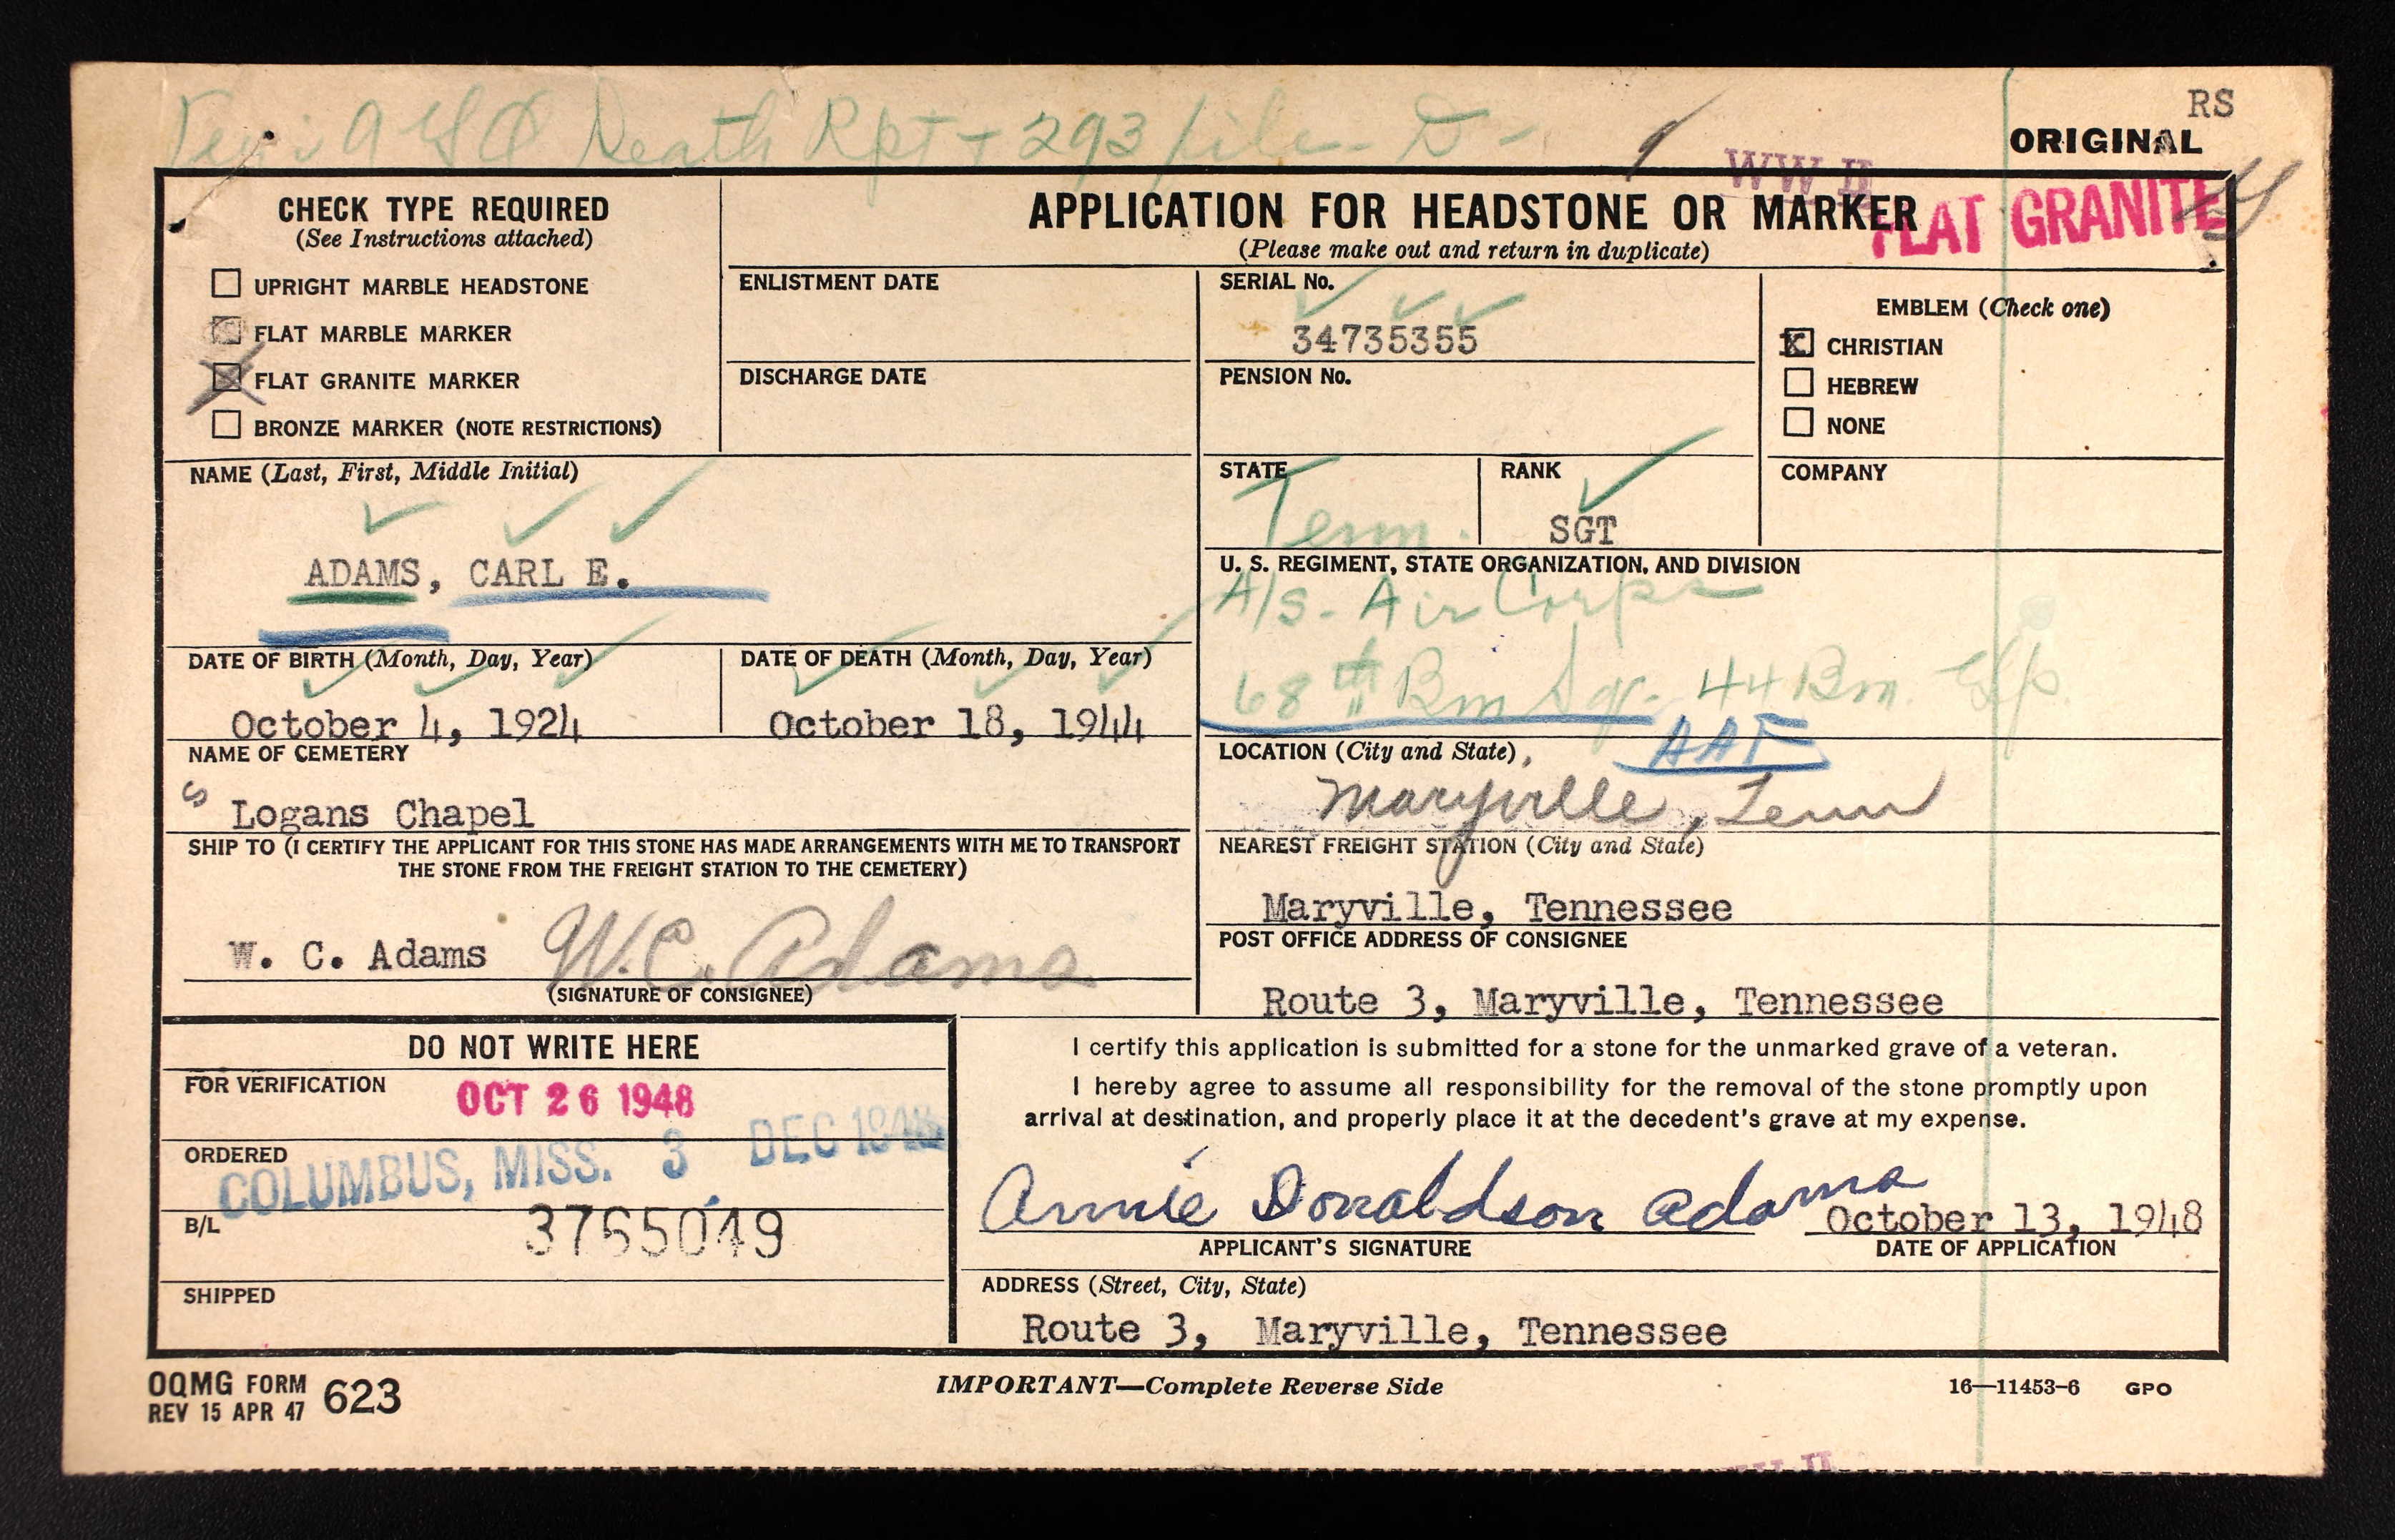 Death Rpt + 293 file - D -
RS
ORIGINAL
WW II
FLAT GRANITE
CHECK TYPE REQUIRED
(See Instructions attached)
UPRIGHT MARBLE HEADSTONE
FLAT MARBLE MARKER
FLAT GRANITE MARKER
BRONZE MARKER (NOTE RESTRICTIONS)
APPLICATION FOR HEADSTONE OR MARKER
(Please make out and return in duplicate)
ENLISTMENT DATE
DISCHARGE DATE
SERIAL No.
34735355
PENSION No.
EMBLEM (Check one)
X CHRISTIAN
HEBREW
NONE
NAME (Last, First, Middle Initial)
ADAMS, CARL E.
STATE
Tenn.
RANK
SGT
COMPANY
U. S. REGIMENT, STATE ORGANIZATION, AND DIVISION
A/S - Air Corps
68th Bm Sq - 44 Bm. Gp.
AAF
DATE OF BIRTH (Month, Day, Year)
October 4, 1924
DATE OF DEATH (Month, Day, Year)
October 18, 1944
NAME OF CEMETERY
S Logans Chapel
LOCATION (City and State)
Maryville, Tenn
SHIP TO (I CERTIFY THE APPLICANT FOR THIS STONE HAS MADE ARRANGEMENTS WITH ME TO TRANSPORT
THE STONE FROM THE FREIGHT STATION TO THE CEMETERY)
W. C. Adams W.C. Adams
(SIGNATURE OF CONSIGNEE)
NEAREST FREIGHT STATION (City and State)
Maryville, Tennessee
POST OFFICE ADDRESS OF CONSIGNEE
Route 3, Maryville, Tennessee
DO NOT WRITE HERE
FOR VERIFICATION
OCT 26 1948
ORDERED
COLUMBUS, MISS. 3 DEC 1948
B/L
3765049
SHIPPED
I certify this application is submitted for a stone for the unmarked grave of a veteran.
I hereby agree to assume all responsibility for the removal of the stone promptly upon
arrival at destination, and properly place it at the decedent's grave at my expense.
Annie Donaldson Adams
October 13, 1948
APPLICANT'S SIGNATURE
DATE OF APPLICATION
ADDRESS (Street, City, State)
Route 3, Maryville, Tennessee
OQMG FORM 623
REV 15 APR 47
IMPORTANT—Complete Reverse Side
16—11453-6 GPO
WW II